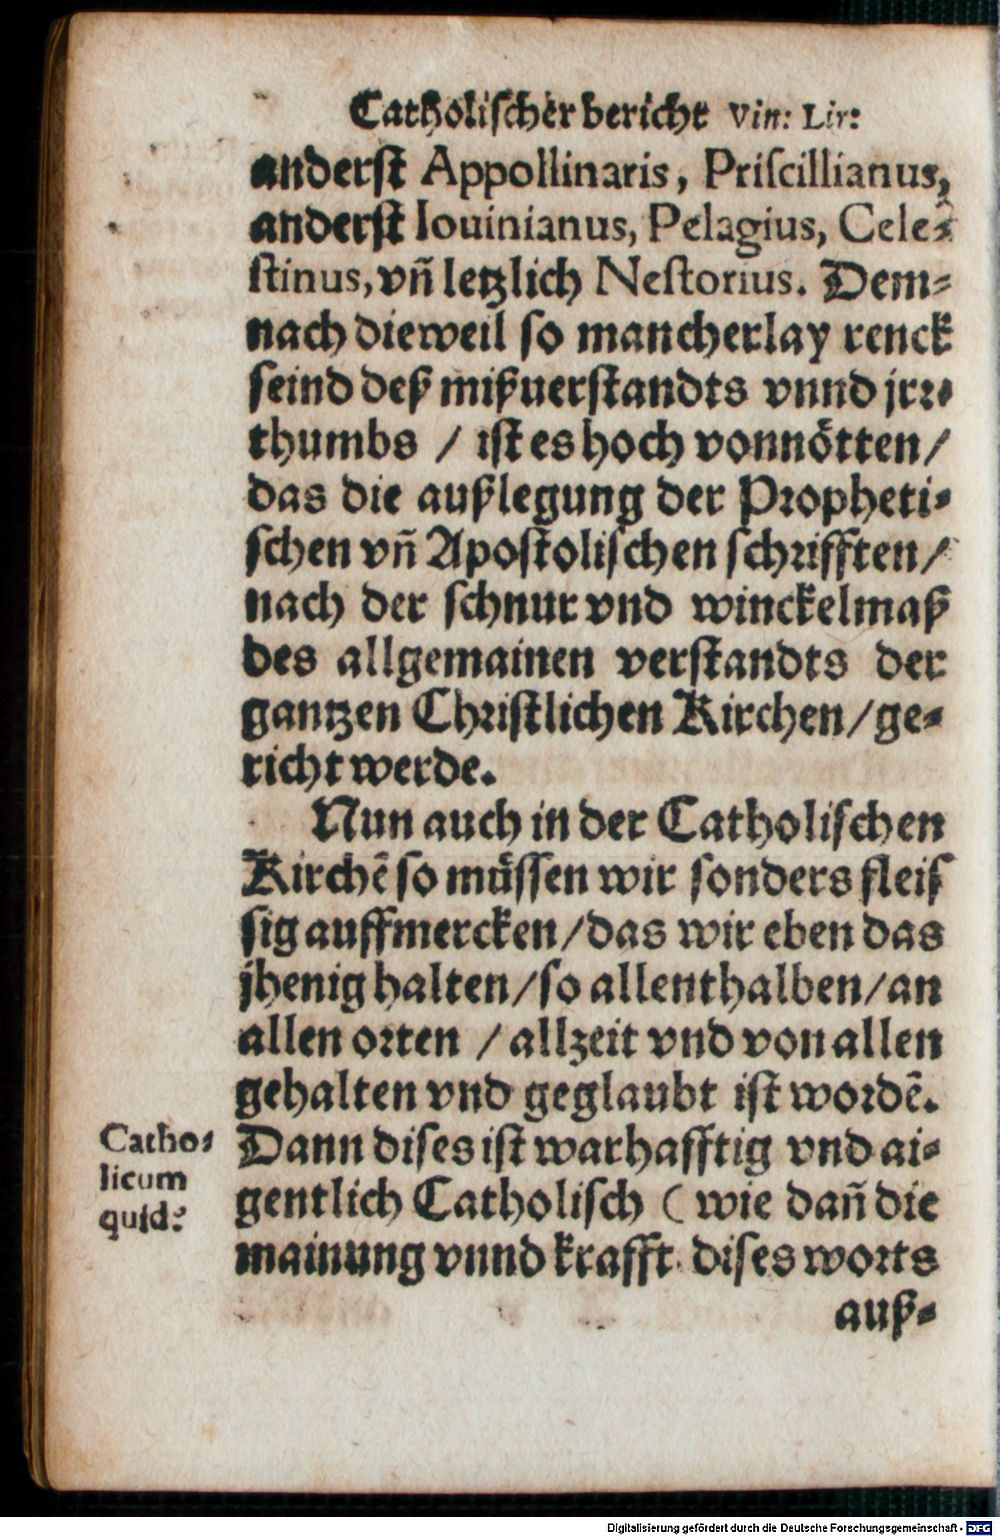 Catholischer bericht Vin: Lir:
anderſt Appollinaris, Priſcillianus,
anderſt Iouinianus, Pelagius, Cele⸗
ſtinus, vñ letzlich Neſtorius. Dem⸗
nach dieweil ſo mancherlay renck
ſeind deß mißuerſtandts vnnd jrꝛ⸗
thumbs / iſt es hoch vonnötten /
das die außlegung der Pꝛopheti⸗
ſchen vñ Apoſtoliſchen ſchꝛifften /
nach der ſchnur vnd winckelmaß
des allgemainen verſtandts der
gantzen Chꝛiſtlichen Kirchen / ge⸗
richt werde.
Nun auch in der Catholiſchen
Kirchẽ ſo müſſen wir ſonders fleiſ
ſig auffmercken / das wir eben das
jhenig halten / ſo allenthalben / an
allen oꝛten / allzeit vnd von allen
gehalten vnd geglaubt iſt woꝛdẽ.
Catho⸗
licum
quid?
Dann diſes iſt warhafftig vnd ai⸗
gentlich Catholiſch ( wie dañ die
mainung vnnd krafft diſes woꝛts
auß⸗
Digitalisierung gefördert durch die Deutsche Forschungsgemeinschaft - DFG